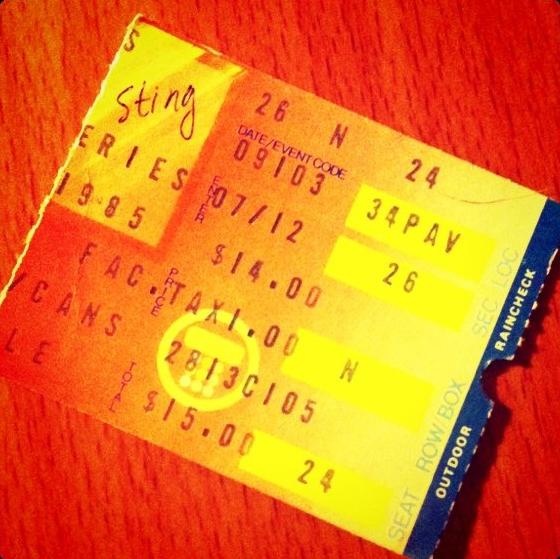 S
26 N 24
Sting
DATE/EVENT CODE
09103
ERIES
ENTER
07/12
34PAV
1985
$14.00
26
SEC LOC
FAC.TAX1.00
PRICE
CANS
2813C105
N
ROW/BOX
LE
TOTAL
$15.00
24
SEAT
OUTDOOR
RAINCHECK